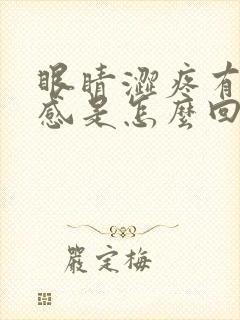 眼睛澀疼有
感是怎麼回
嚴定梅